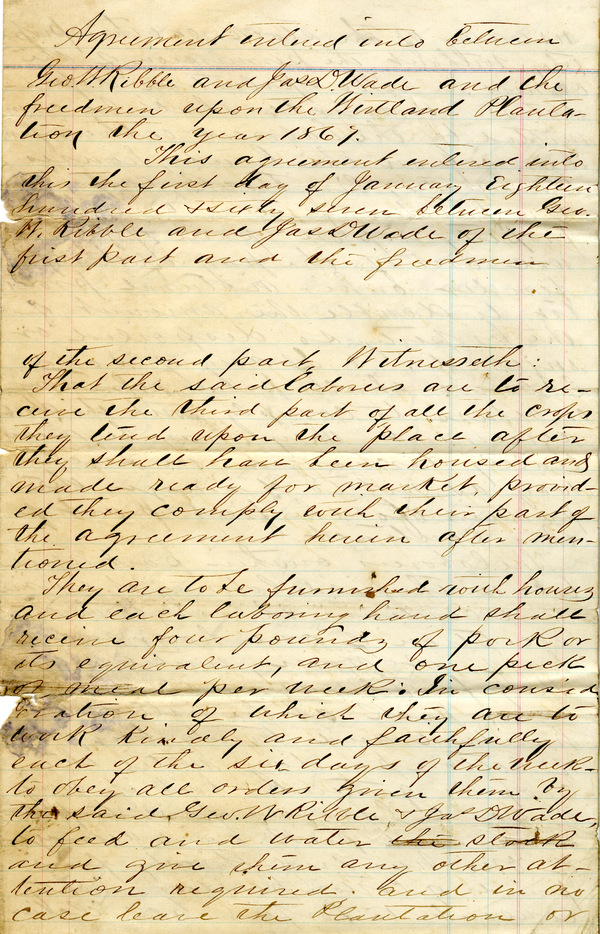 Agreement entered into between
Geo. W Ribble and Jas D. Wade and the
freedmen upon the Wirtland Planta-
tion the year 1867.
This agreement entered into
this the first day of January Eighteen
hundred & sixty seven between Geo.
W. Ribble and Jas D Wade of the
first part and the freedmen
of the second part Witnesseth:
That the said laborers are to re-
ceive the third part of all the crops
they tend upon the place after
they shall have been housed and
made ready for market, provid-
ed they comply with their part of
the agreement herein after men-
tioned.
They are to be furnished with houses
and each laboring hand shall
receive four pounds of pork or
its equivalent, and one peck
of meal per week. In consid
eration of which they are to
work kindly and faithfully
each of the six days of the week-
to obey all orders given them by
the said Geo. W Ribble & Jas D Wade,
to feed and water the stock
and give them any other at-
tention required. and in no
case leave the Plantation or